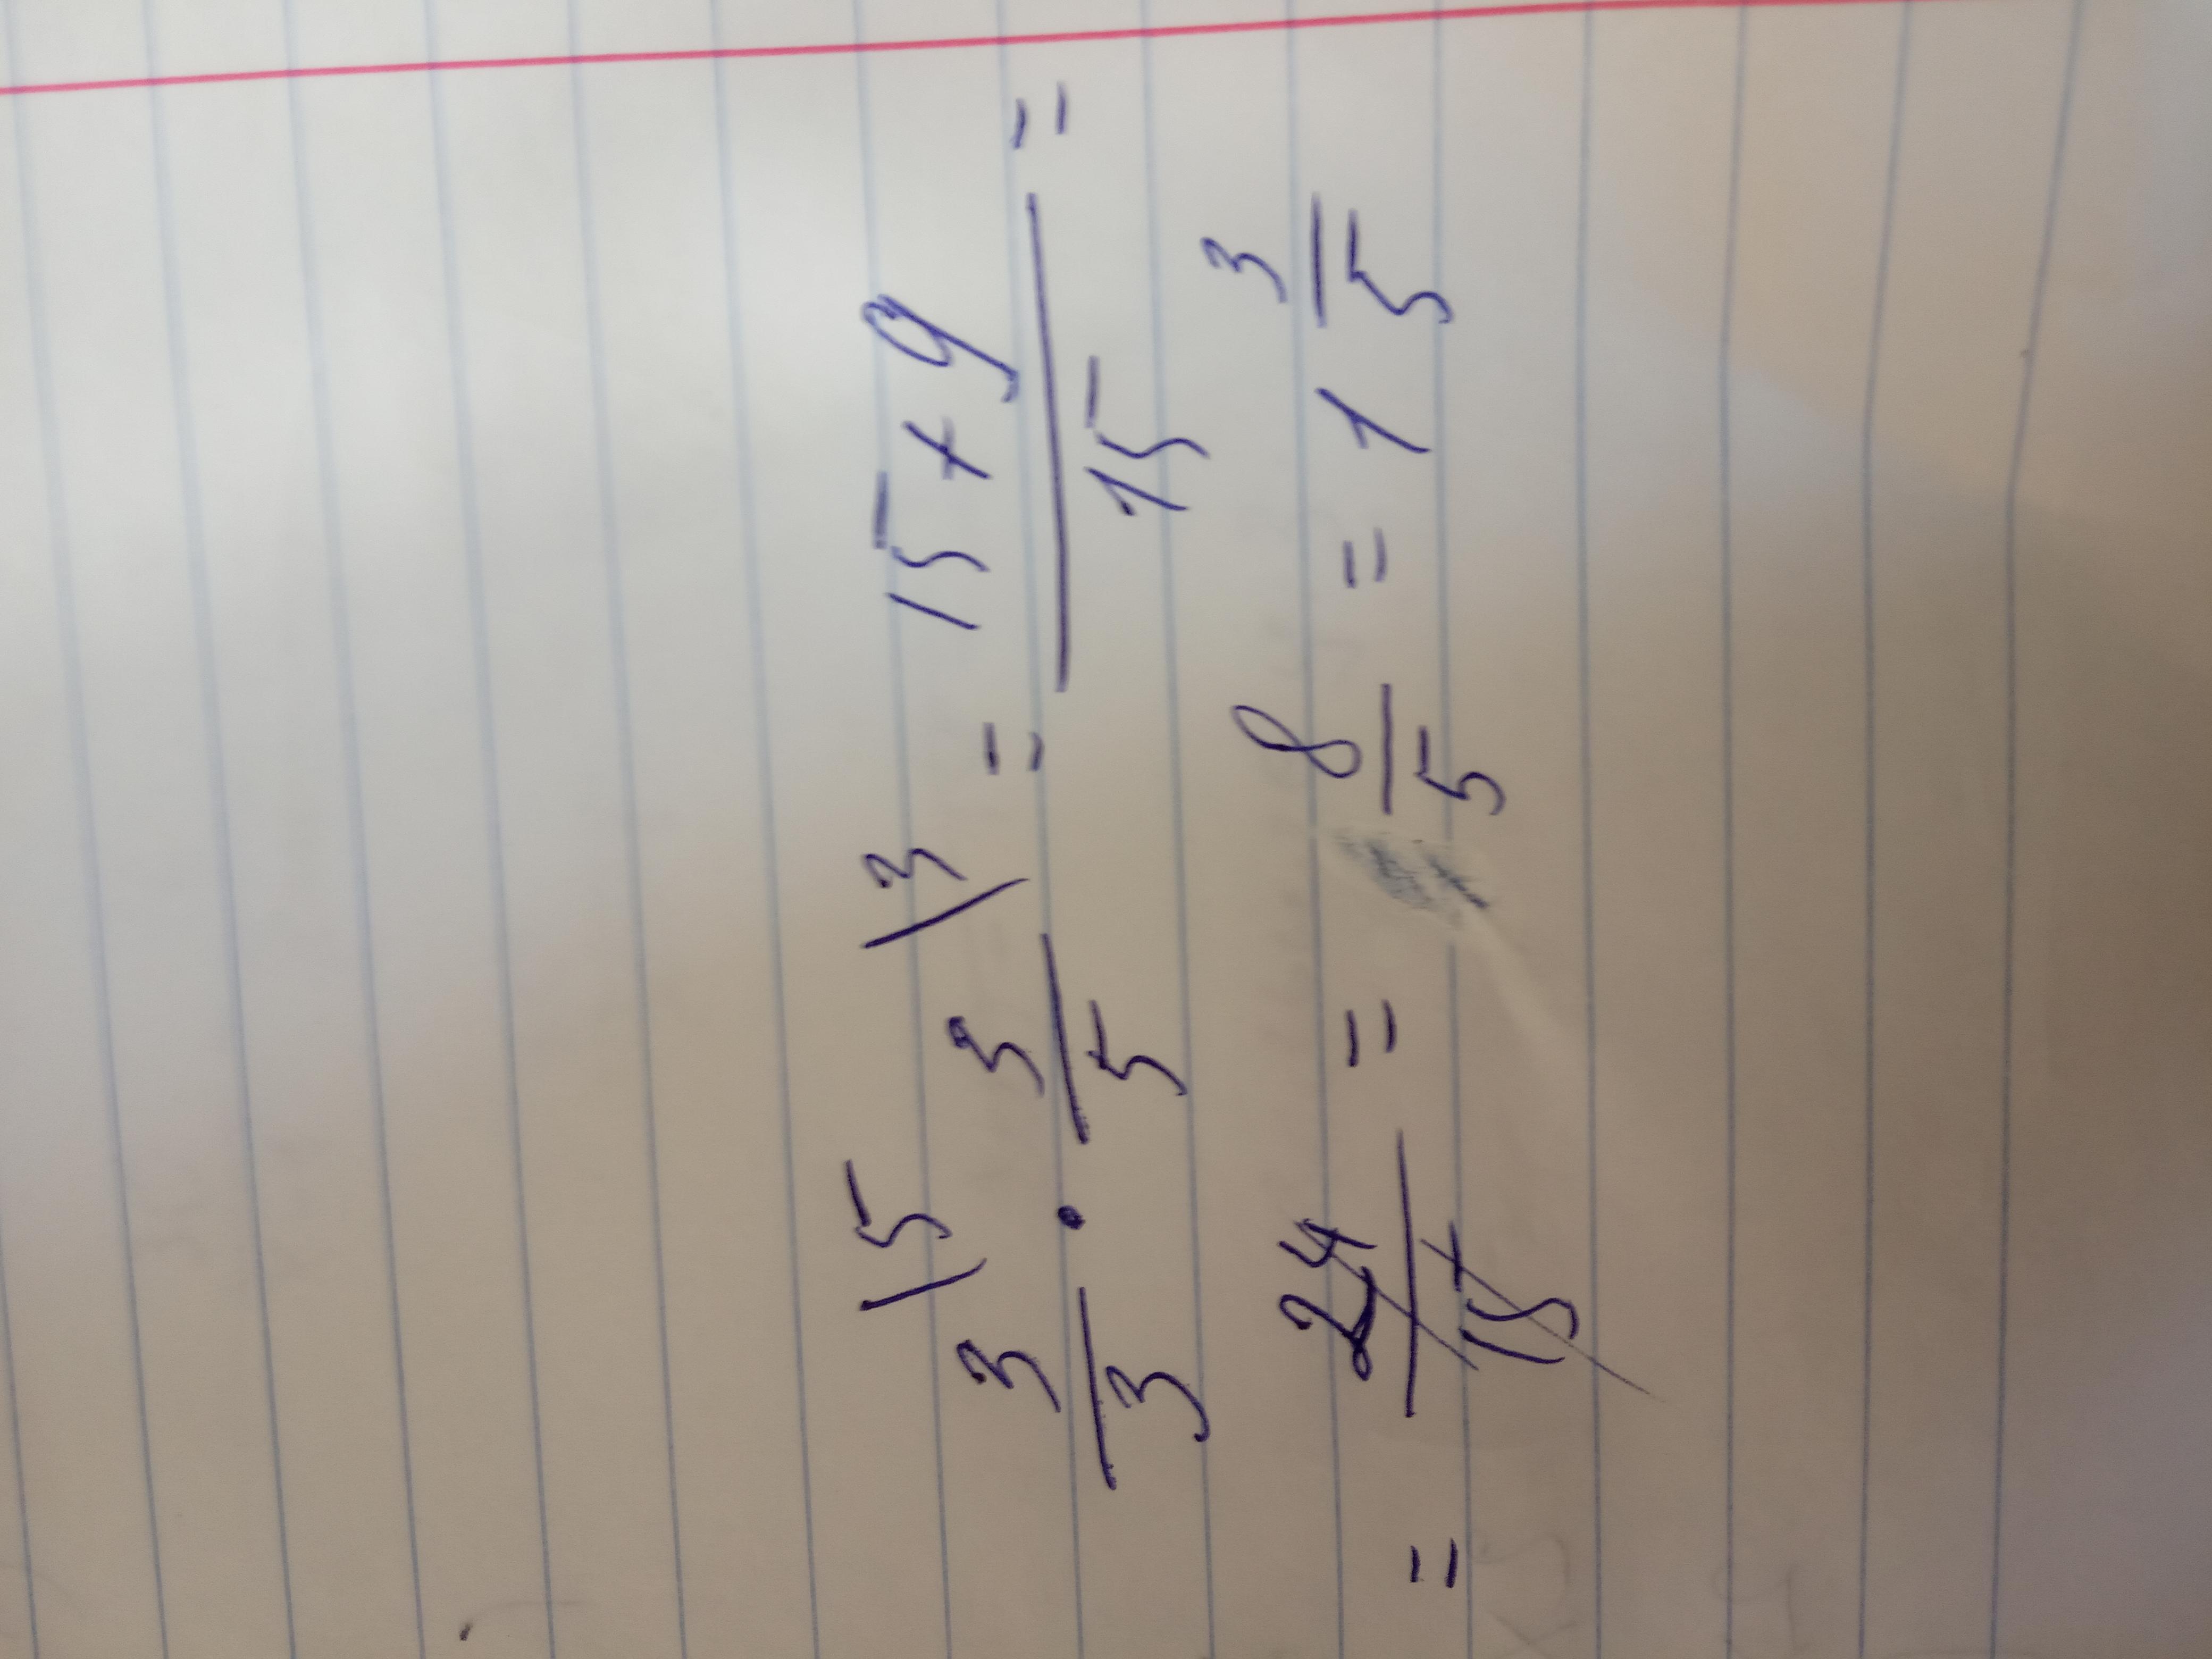 3/3 \5 · 3/5 \3 = 15+9/15 =
= 24/15 = 8/5 = 1 3/5